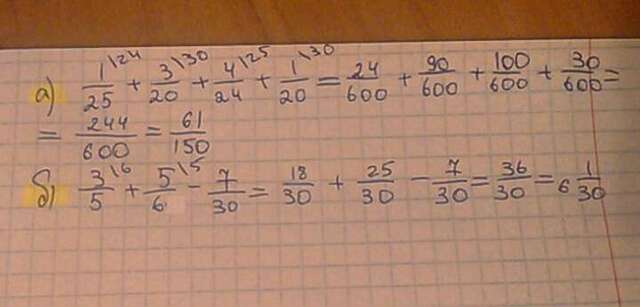 а) 1/25 \24 + 3/20 \30 + 4/24 \25 + 1/20 \30 = 24/600 + 90/600 + 100/600 + 30/600 =
= 244/600 = 61/150
б) 3/5 \6 + 5/6 \5 - 7/30 = 18/30 + 25/30 - 7/30 = 36/30 = 6 1/30